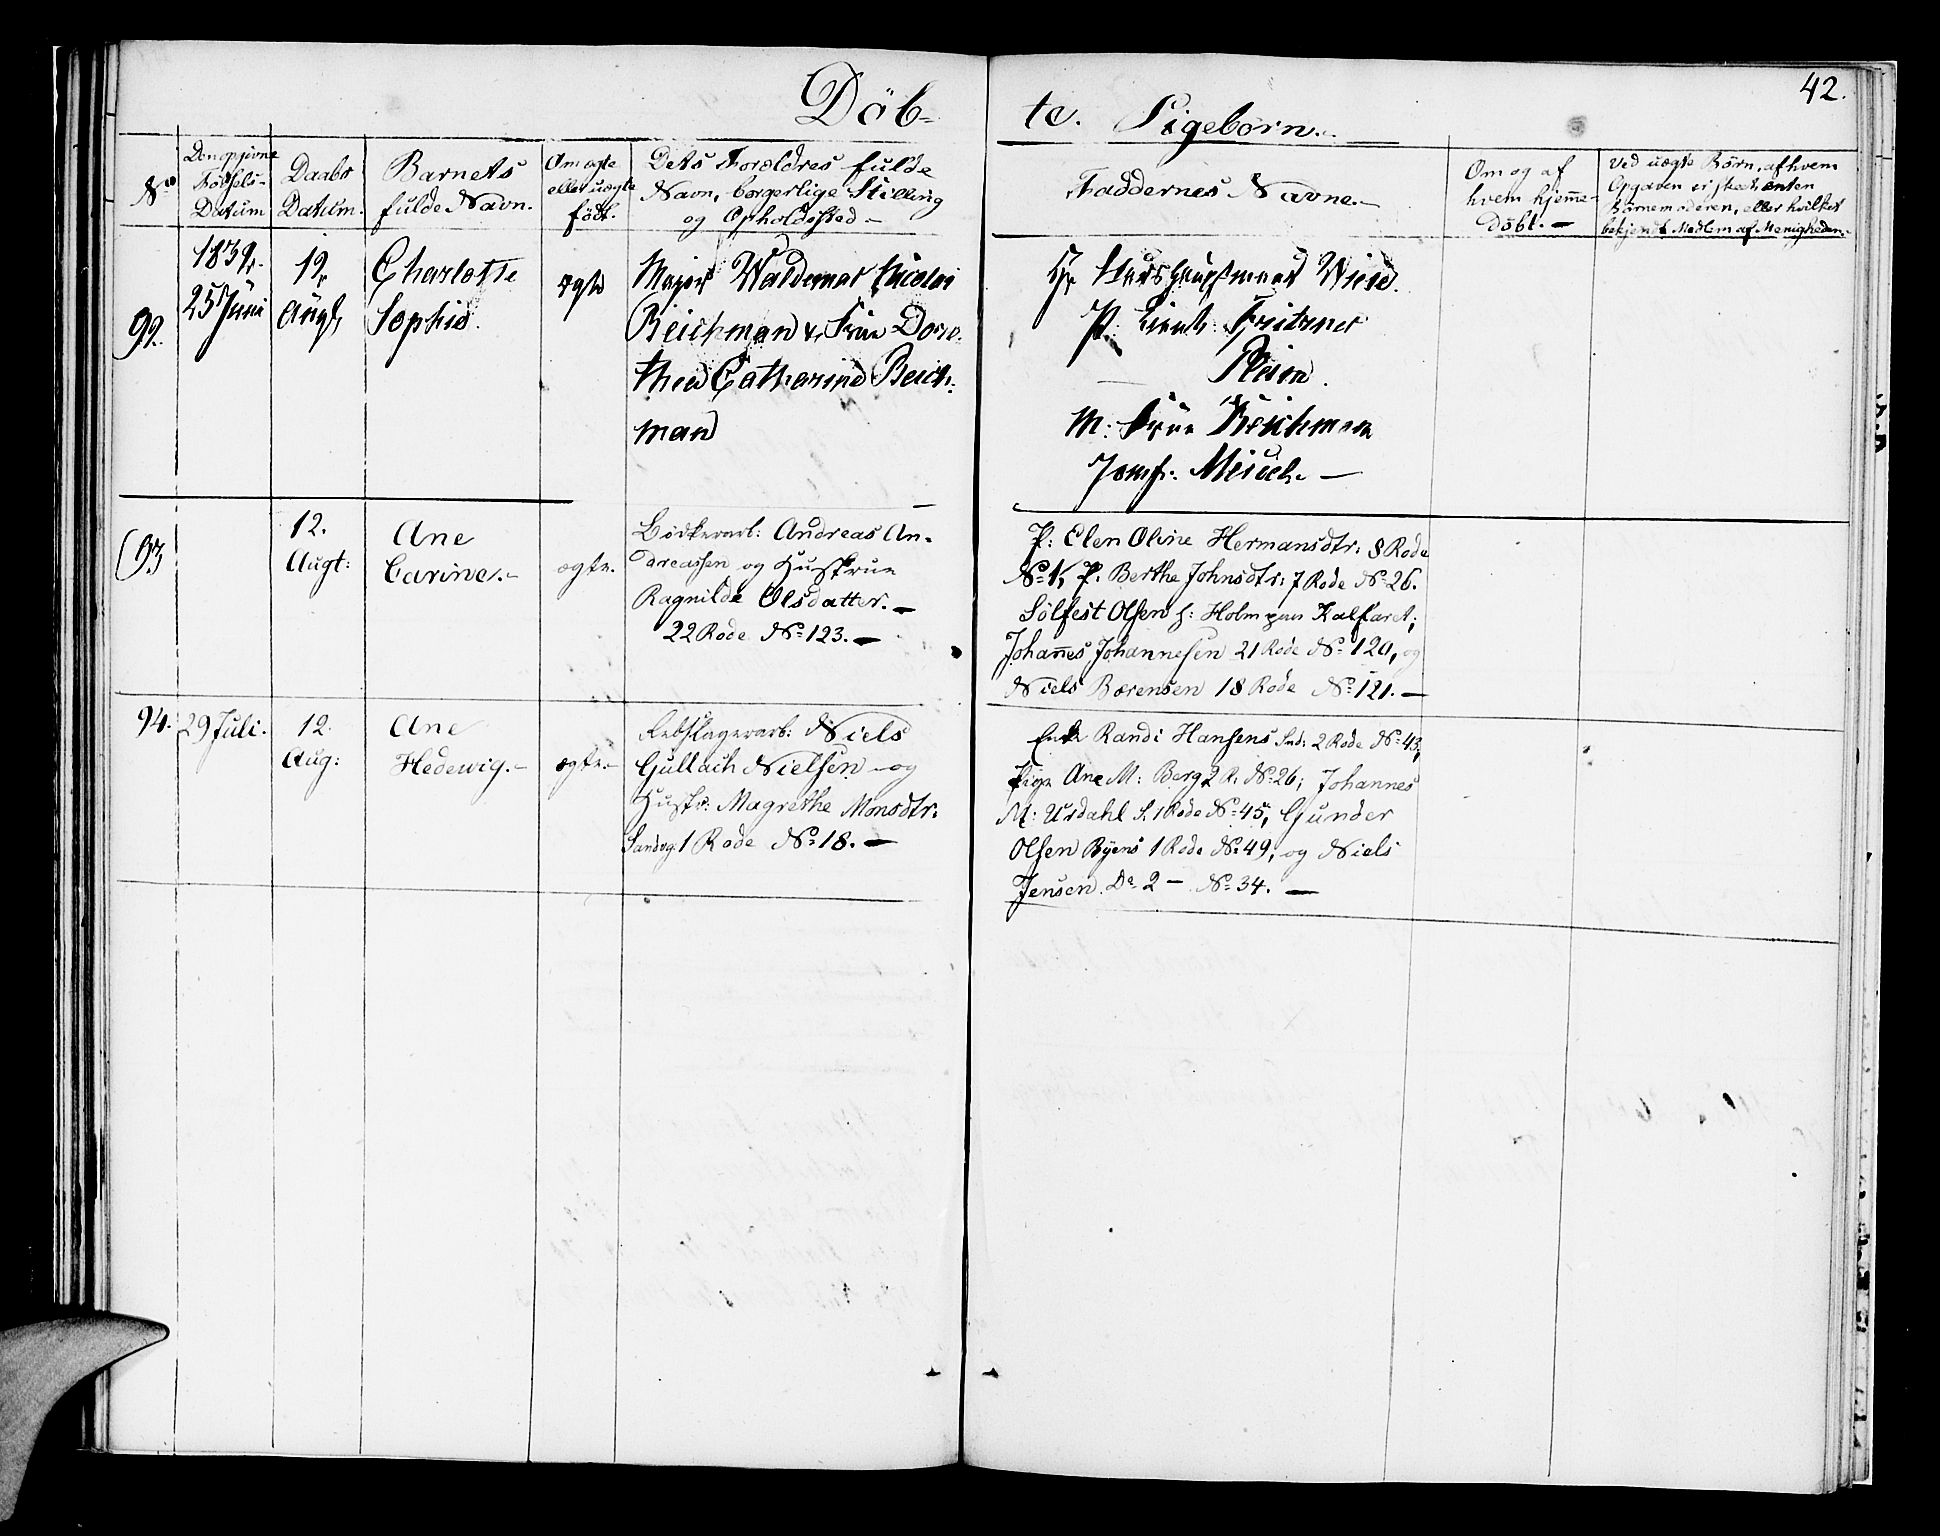 42.
Döb-
te. Pigebörn.
No
Den opgivne
Födsels-
Datum
Daabs
Datum.
Barnets
fulde Navn.
Om ægte
eller uægte
födt.
Dets Forældres fulde
Navn, borgerlige Stilling
og Opholdssted —
Faddernes Navne.
Om og af
hvem hjem̄e-
döbt. —
Ved uægte Börn, af hvem
Opgaven er skeet, enten
Barnemoderen, eller hvilket
bekjendt Medlem af Menigheden.
92.
1839
25 Juni
12
Augt
Charlotte
Sophie
ægte
Major Waldemar Nicolai
Beichman & Frue Doro
thea Catharine Beich-
man
Hr Wiese.
P. Lieut: Fritzner
Frue Beichman
Jomf:
93
12.
Augt:
Ane
Carine.-
ægte.
Bödkerarb: Andreas An-
dreassen og Hustrue
Ragnilde Olsdatter. —
22 Rode No 123. —
P: Elen Oline Hermansdtr: 8 Rode
No 1, P. Berthe Johnsdtr: 7 Rode No 26.
Sölfest Olsen h: Holm paa Kalfaret,
Johan̄es Johannesen 21 Rode No 120, og
Niels Bærensen 18 Rode No 121. —
94.
29 Juli.
12.
Aug:
Ane
Hedewig.-
ægte.-
Rebslagerarb: Niels
Gullach Nielsen - og
Hustr: Magrethe Monsdtr:
Sandvg: 1 Rode No 18. —
Enke Randi Hansens 2 Rode No 43,
Pige Ane M: Berg 2 R. No 26; Johannes
M: Urdahl S. 1 Rode No 45, Gunder
Olsen Byens 1 Rode No 49, og Niels
Jensen Do 2 — No 34. —